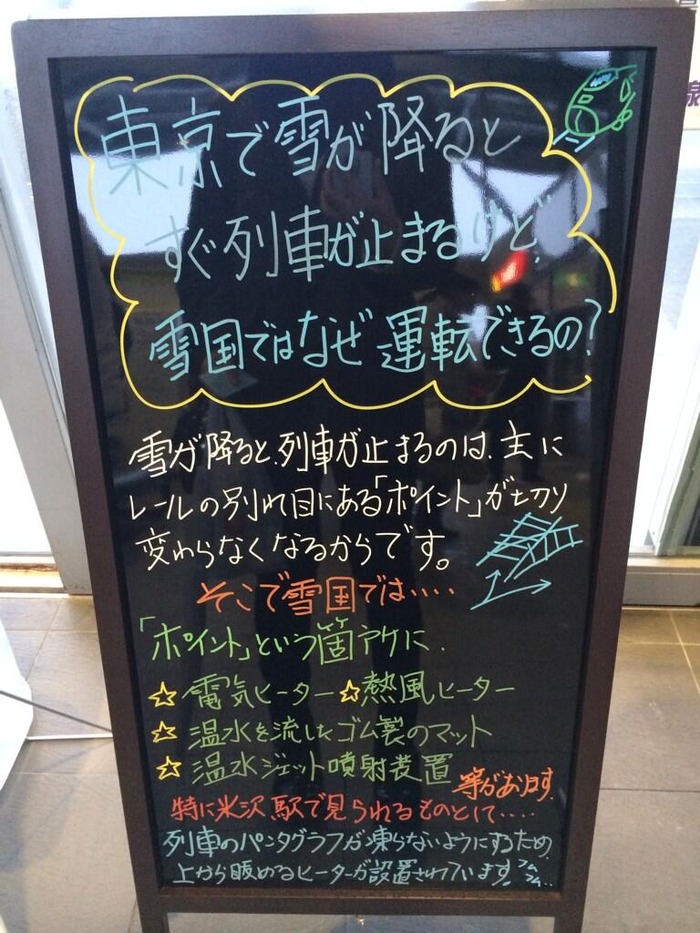 東京で雪が降ると
すぐ列車が止まるけど、
雪国ではなぜ運転できるの?
雪が降ると、列車が止まるのは、主に
レールの別れ目にある「ポイント」が切り
変わらなくなるからです。
そこで雪国では‥‥
「ポイント」という箇所に、
☆ 電気ヒーター ☆ 熱風ヒーター
☆ 温水を流したゴム製のマット
☆ 温水ジェット噴射装置 等があります
特に米沢駅で見られるものとして‥‥
列車のパンタグラフが凍らないようにするため、
上から暖めるヒーターが設置されています!
泉